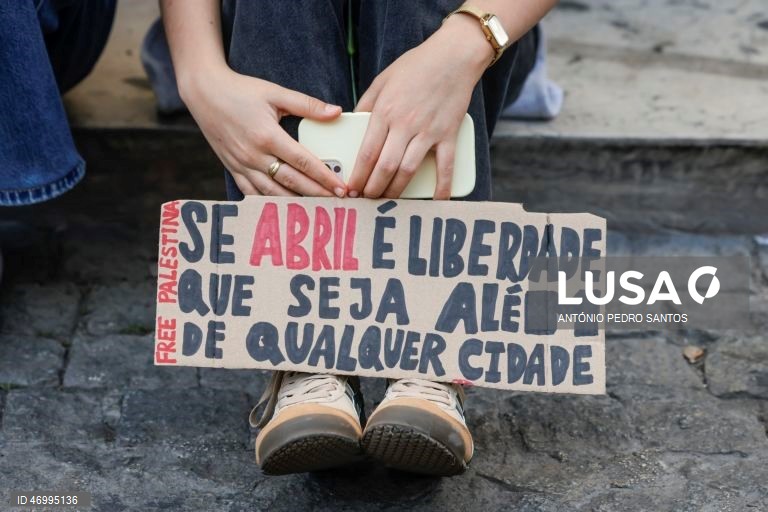 FREE PALESTINA
SE ABRIL É LIBERDADE
QUE SEJA
DE QUALQUER CIDADE
LUSA
ANTÓNIO PEDRO SANTOS
ID 46995136